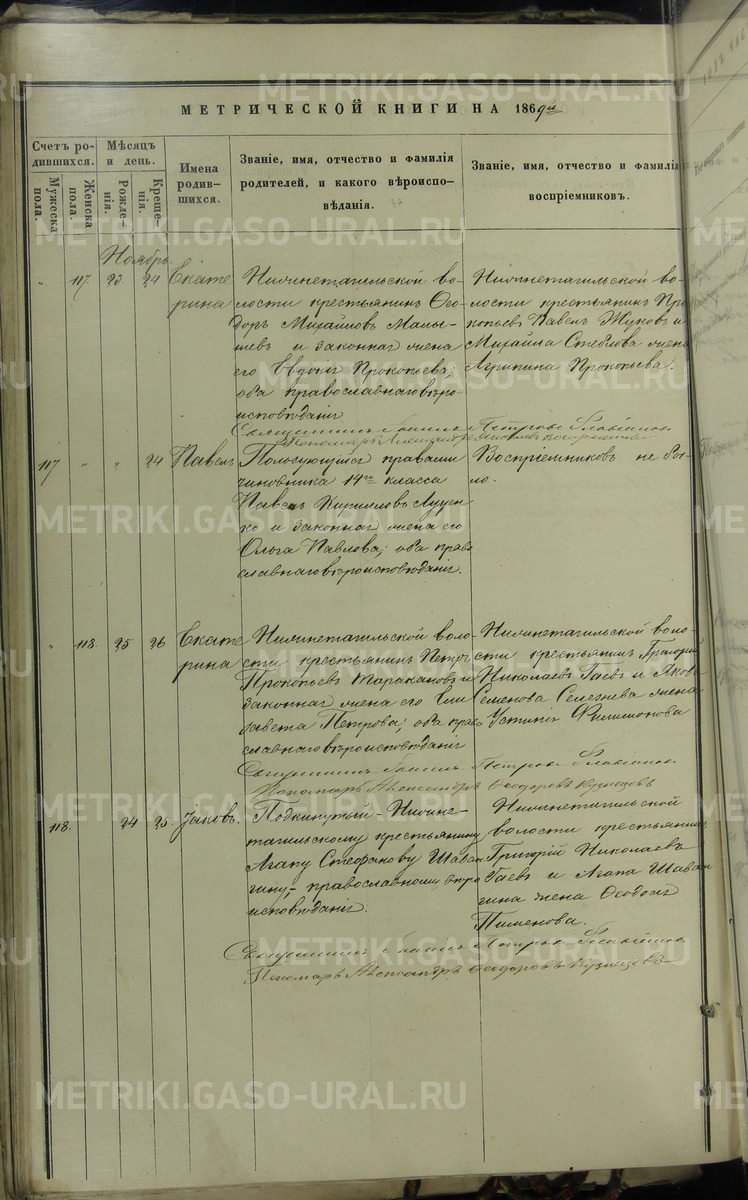 МЕТРИЧЕСКОЙ КНИГИ НА 1869й
Счетъ ро-
дившихся.
Мѣсяцъ
и день.
Имена
родив-
шихся.
Званіе, имя, отчество и фамилія
родителей, и какого вѣроиспо-
вѣданія.
Званіе, имя, отчество и фамилія
воспріемниковъ.
Мужеска
пола.
Женска
пола.
Рожде-
нія.
Креще-
нія.
Ноябрь
„ 117. 23 24
Екате
рина
Нижнетагильской во-
лости крестьянинъ Ѳео-
доръ Михайловъ Малы-
шевъ и законная жена
его Евдокія Прокопьева;
оба православнаго вѣро-
исповѣданія
Нижнетагильской во-
лости крестьянинъ Про
копьевъ Павелъ Жуковъ и
Михайла жена
Агрипина Прокопьева.
Священникъ Петръ
Пономарь
117 „ „ 24
Павелъ
Пользующійся правами
чиновника 14го класса
Павелъ Кирилловъ Луцен
ко и законная жена его
Ольга Павлова; оба право
славнаго вѣроисповѣданія.
Воспріемниковъ не бы-
ло.
„ 118. 25 26
Екате
рина
Нижнетагильской воло-
сти крестьянинъ Петръ
Прокопьевъ Таракановъ и
законная жена его Ели
завета Петрова; оба право
славнаго вѣроисповѣданія
Нижнетагильской воло-
сти крестьянинъ Григорій
Николаевъ Гаевъ и Якова
Семенова Селезнева жена
Устинія Филимонова
Священникъ Петръ
Пономарь Александръ Ѳеодоровъ Кузнецовъ
118. 24 25.
Яковъ.
Подкинутый Нижне-
тагильскому крестьянину
Агапу Стефанову Шаван
гину, – православному вѣро
исповѣданія.
Нижнетагильской
волости крестьянинъ
Григорій Николаевъ
Гаевъ и Агапа Шаван
гина жена Ѳеодосія
Пименова.
Священникъ Петръ
Пономарь Александръ Ѳеодоровъ Кузнецовъ
METRIKI.GASO-URAL.RU